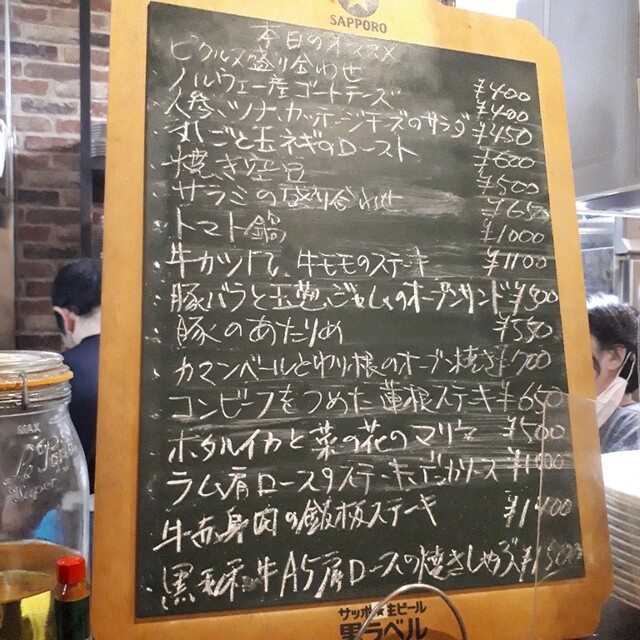 SAPPORO
本日のオススメ
ピクルス盛り合わせ ¥400
ノルウェー産ゴートチーズ ¥400
人参、ツナ、カッテージチーズのサラダ ¥450
丸ごと玉ネギのロースト ¥600
焼き空豆 ¥500
サラミの盛り合わせ ¥650
トマト鍋 ¥1000
牛カツレツ、牛モモのステーキ ¥1100
豚バラと玉葱、じゃがのオーブンサンド ¥500
豚のあたりめ ¥550
カマンベールとゆり根のオーブン焼き ¥700
コンビーフをつめた蓮根ステーキ ¥650
ホタルイカと菜の花のマリネ ¥500
ラム肩ロースステーキ、ソース
牛赤身肉の鉄板ステーキ ¥1400
黒毛和牛A5肩ロースの焼きしゃぶ
MAX
サッポロ★生ビール
黒ラベル